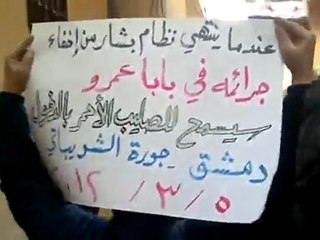 عندما ينتهي نظام بشار من إخفاء
جرائمه في بابا عمرو
سيسمح للصليب الأحمر بالدخول
دمشق - جورة الشريباتي
٢٠١٢ / ٣ / ٥